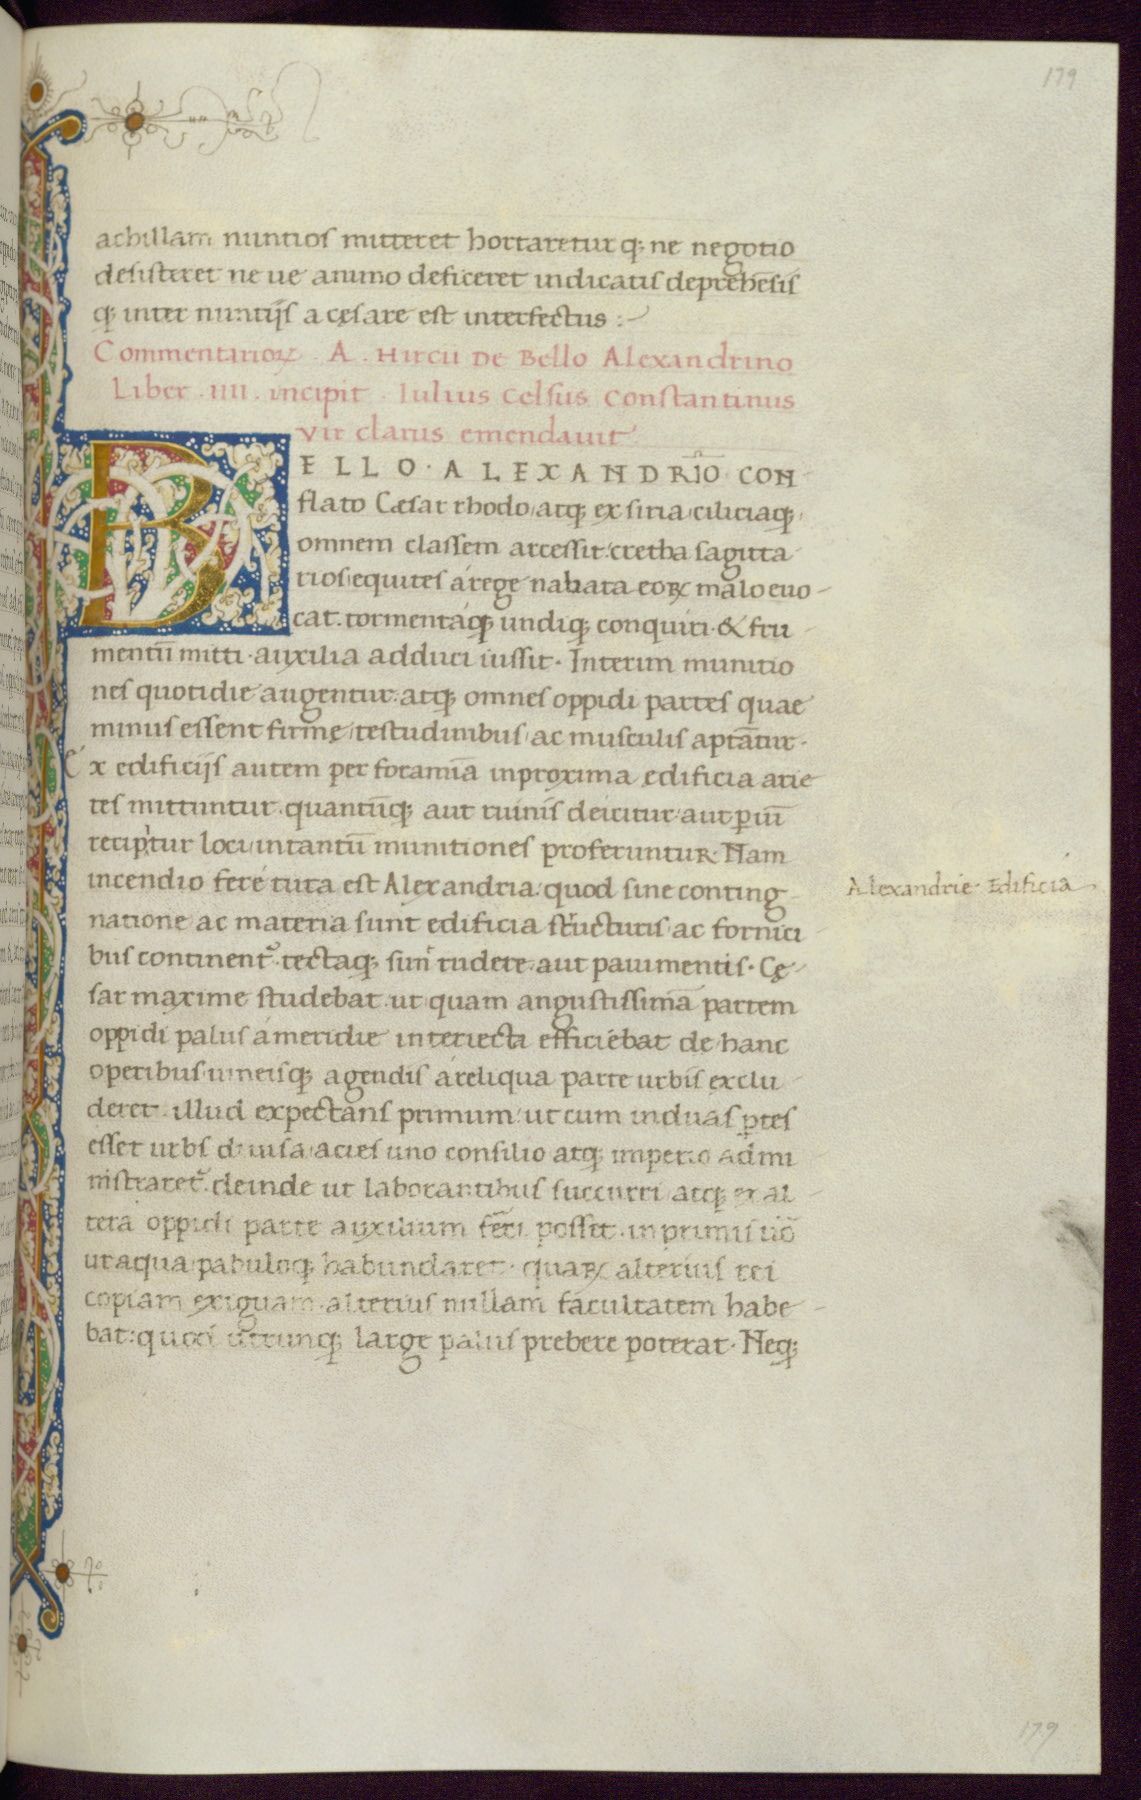 179
achillam nuntios mitteret hortaretur q; ne negotio
desisteret ne ue animo deficeret indicatis deprehēsis
q; inter nuntijs a cęsare est interfectus :~
Commentarioꝝ . A . Hircii De Bello Alexandrino
Liber . IIII . incipit . Iulius Celsus Constantinus
vir clarus emendauit
BELLO · ALEXANDRĪO · CON
flato Cæsar rhodo atq; ex siria ciliciaq;
omnem classem arcessit: cretha sagitta
rios equites á rege nabata eoꝝ malo euo
cat. tormentáq; undiq; conquiri · & fru
mentū mitti · auxilia adduci iussit · Interim munitio
nes quotidie augentur. atq; omnes oppidi partes quae
minus essent firmę testudinibus ac musculis aptātur ·
Ex edificijs autem per foramīa in proxima ędificia arie
tes mittuntur. quantūq; aut ruinis deicitur aut ꝑ uī
recipitur loci intantū munitiones proferuntur. Nam
incendio feré tuta est Alexandria: quod sine conting
Alexandrie Edificia
natione ac materia sunt edificia structuris ac fornici
bus continent᷑. tectaq; sunt rudere aut pauimentis · Cę
sar maxime studebat ut quam angustissimā partem
oppidi palus á meridie interiecta efficiébat de hanc
operibus uineisq; agendis á reliqua parte urbis exclu
deret. illud expectans primum ut cum in duas ꝑtes
esset urbs diuisa acies uno consilio atq; imperio admi
nistraret᷑. deinde ut laborantibus succurri atq; ex al
tera oppidi parte auxilium ferri posset. in primis uō
ut aqua pabuloq; habundaret · quaꝝ alterius rei
copiam exiguam. alterius nullam facultatem habe
bat: quod utrunq; large palus prebere poterat · Neq;
179